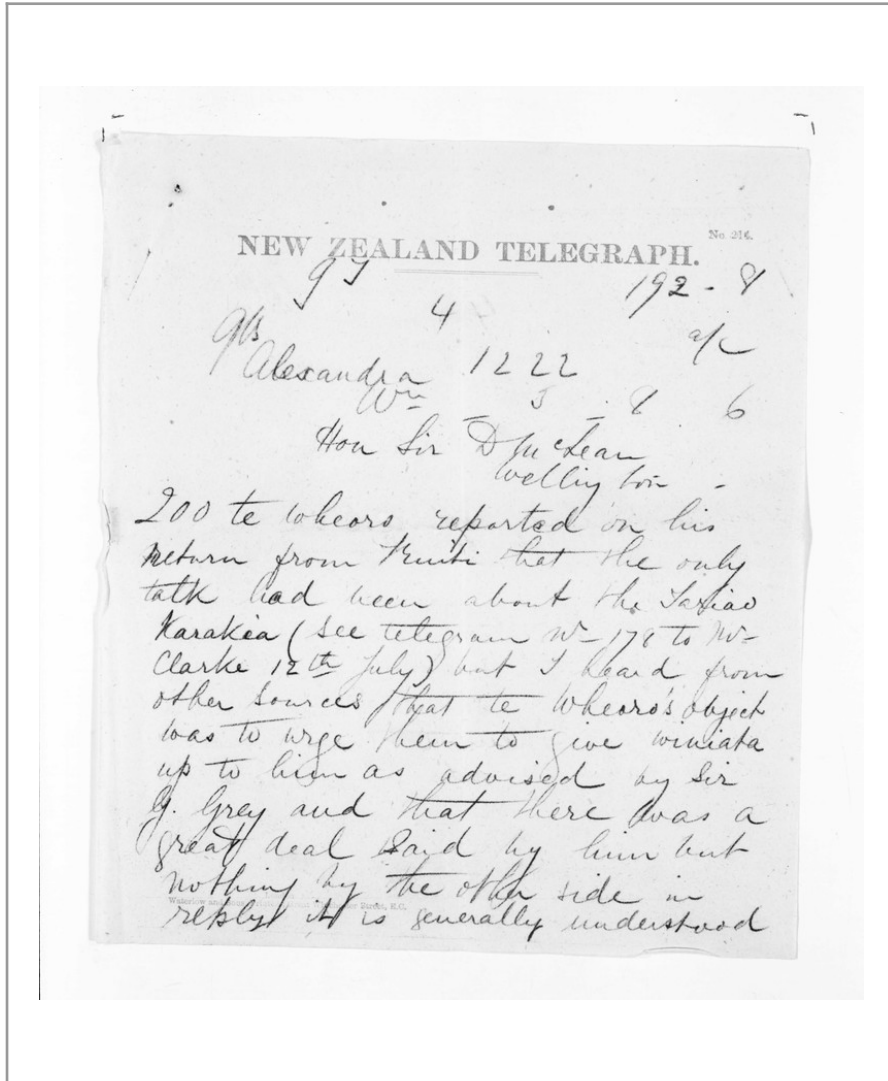 No. 216.
NEW ZEALAND TELEGRAPH.
192 - 8
4
a/c
Alexandra 1222
Wn - 5 - 8 6
Hon Sir D McLean
Wellington -
200 te Wheoro reported on his
return from Kuiti that the only
talk had been about the Tariao
Karakia (see telegram No 178 to Mr
Clarke 12th July) but I heard from
other sources that te Wheoro's object
was to urge them to give winiata
up to him as advised by Sir
G. Grey and that there was a
great deal said by him but
nothing by the other side in
reply it is generally understood
Waterlow and